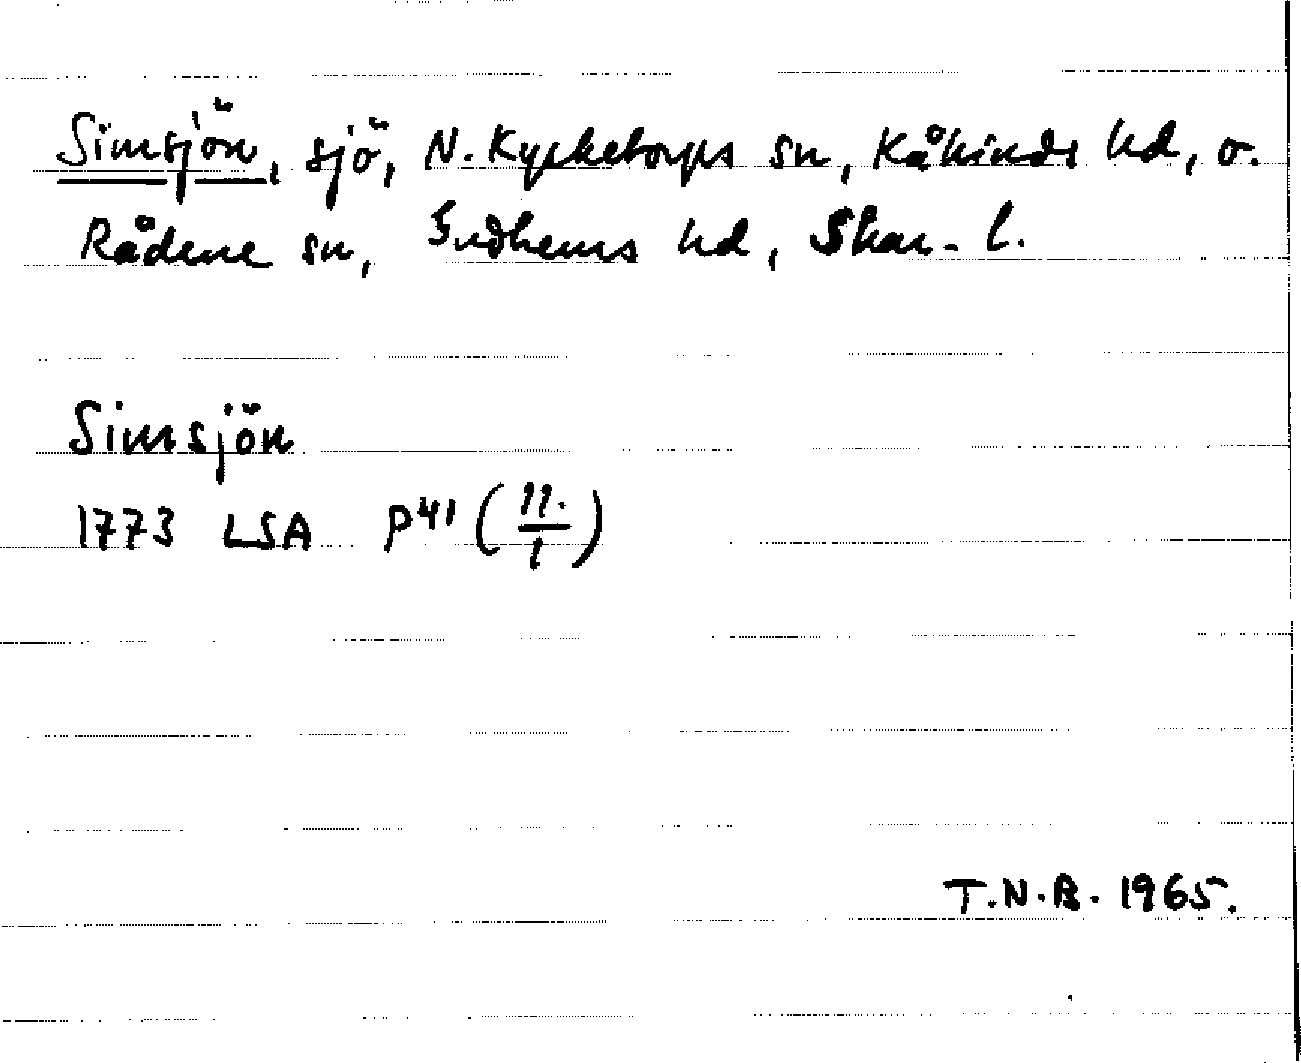 Simsjön, sjö, N. Kyrketorps sn, Kåkinds hd, o.
Rådene sn, Gudhems hd, Skar. l.
Simsjön
1773 LSA P41 (11./1)
T.N.B. 1965.